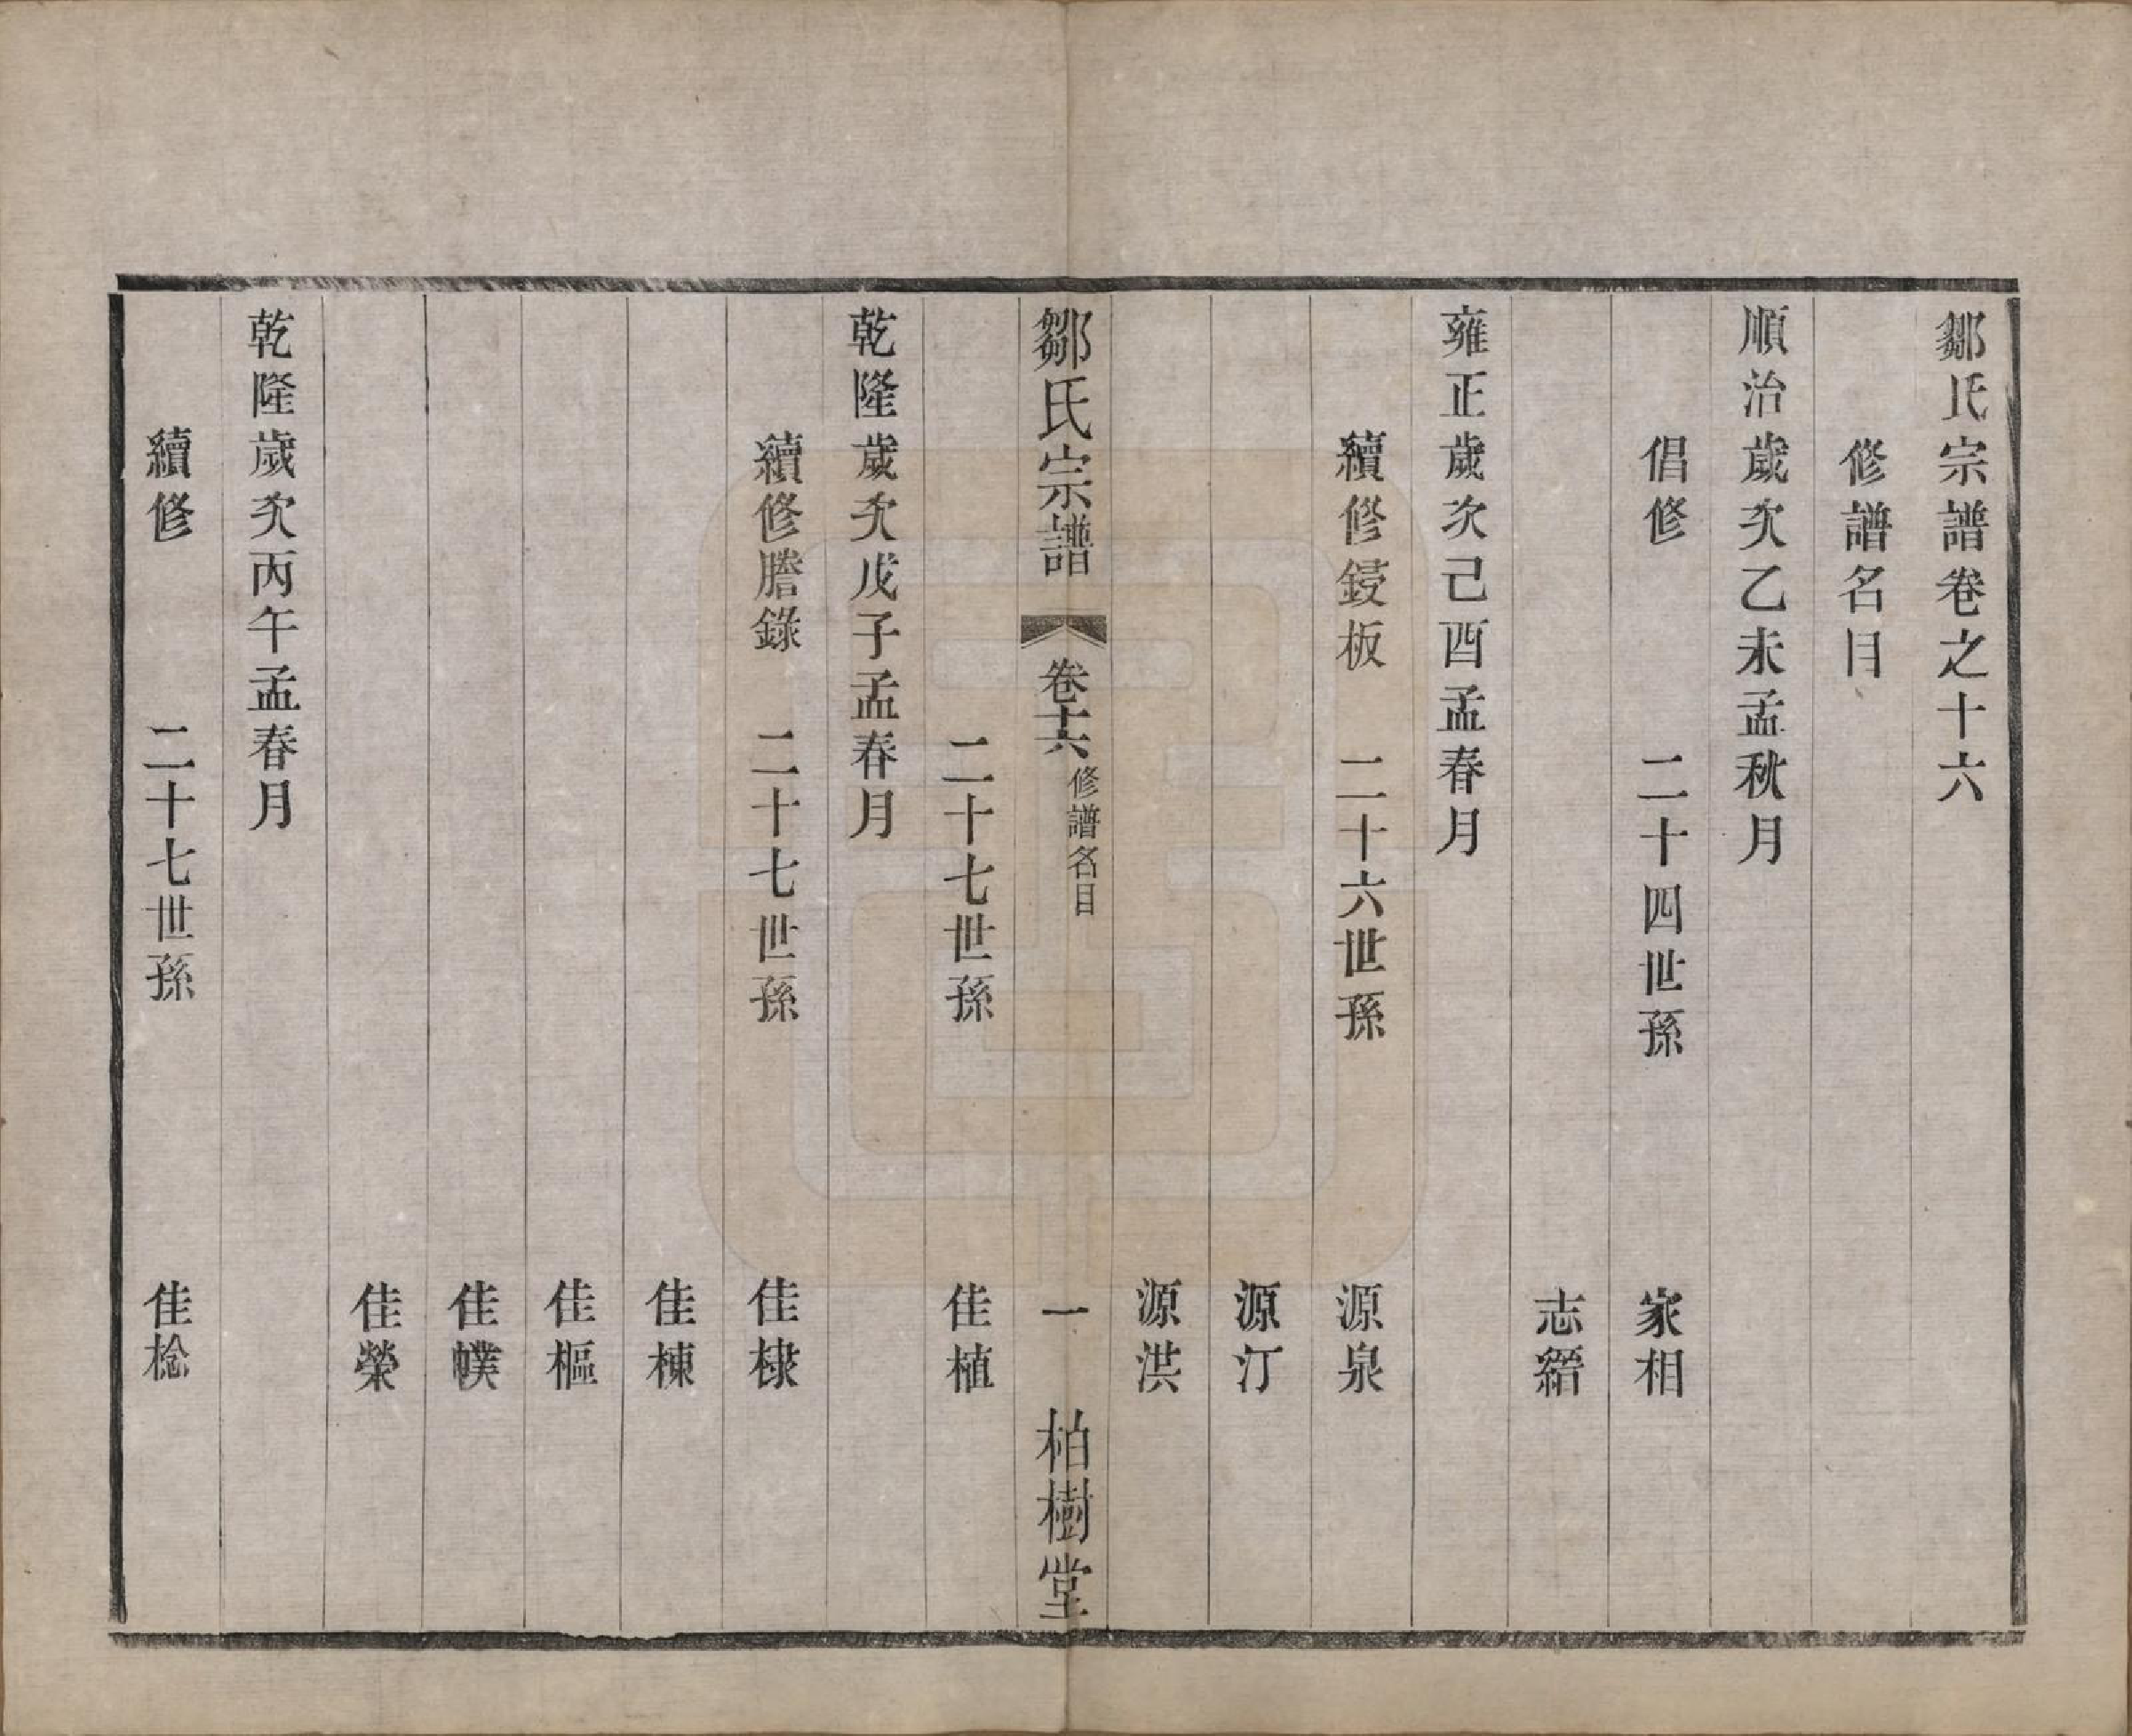 鄒氏宗譜卷之十六
修譜名目
順治歲次乙未孟秋月
倡修 二十四世孫 家相
志縉
雍正歲次己酉孟春月
續修鋟板 二十六世孫 源泉
源汀
源洪
鄒氏宗譜 卷十六 修譜名目 一 柏樹堂
二十七世孫 佳植
乾隆歲次戊子孟春月
續修謄錄 二十七世孫 佳棣
佳棟
佳樞
佳幞
佳榮
乾隆歲次丙午孟春月
續修 二十七世孫 佳棯